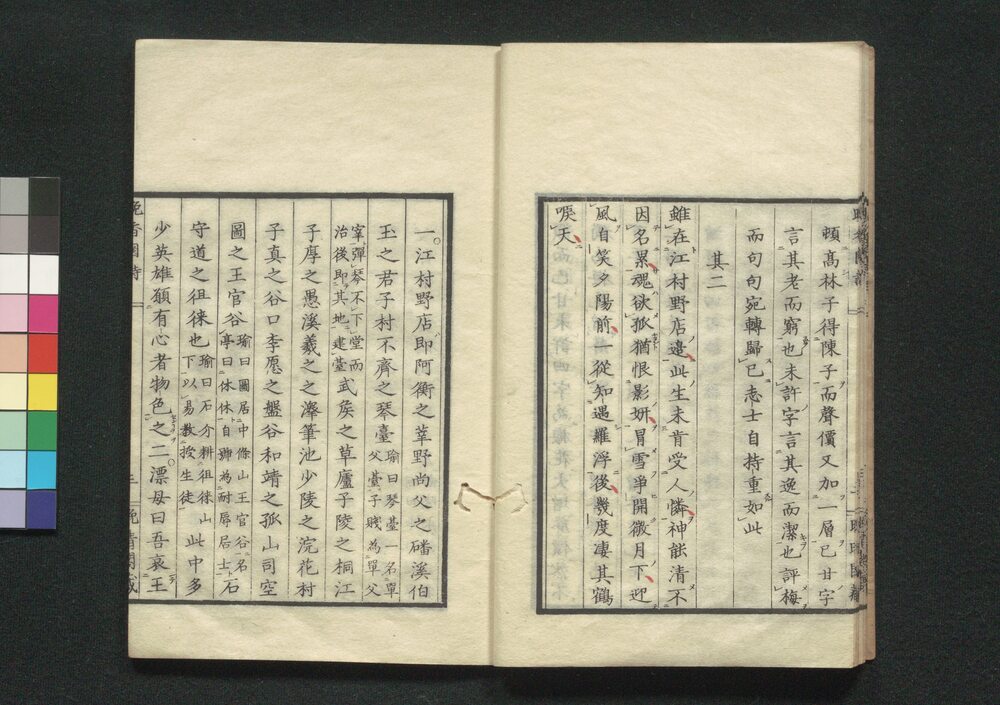 頓髙林子得陳子而聲價又加一層已甘字
言其老而窮也未許字言其逸而潔也評梅
而句句宛轉歸已志士自持重如此
其二
雖在江村野店邉此生未肯受人憐神能清不
因名累魂欲孤猶恨影妍冒雪爭開微月下迎
風自笑夕陽前一從知遇羅浮後幾度凄其鶴
唳天
一江村野店即阿衡之莘野尚父之磻溪伯
玉之君子村不齊之琴臺瑜曰琴臺一名單父臺子賤為單父
宰彈琴不下堂而治後即其地建臺武矦之草廬子陵之桐江
子厚之愚溪羲之之澤筆池少陵之浣花村
子真之谷口李愿之盤谷和靖之孤山司空
圖之王官谷瑜曰圖居中條山王官谷名亭曰休休自號為耐辱居士石
守道之徂徠也瑜曰石介耕徂徠山下以易教授生徒此中多
少英雄願有心者物色之二漂母曰吾哀王